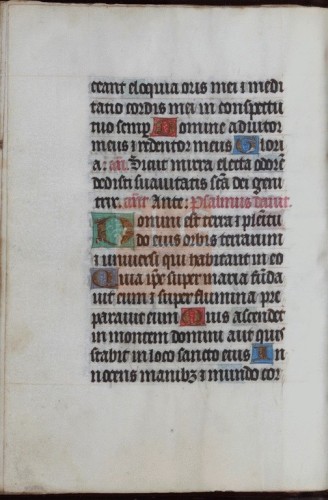 ceant eloquia oris mei ⁊ medi
tatio cordis mei in conspectu
tuo semp̲ Domine adiutor
meus ⁊ redemtor meus Glori
a: añ. Sicut mirra electa odorē
dedisti suauitatis sc̄a dei geni
trix. añt Ante: Psalmus dauit.
Domini est terra ⁊ plenitu
do eius orbis terrarum
⁊ uniuersi qui habitant in eo
Quia ip̄e super maria funda
uit eum ⁊ super flumina pre
parauit eum Quis ascendet
in montem domini aut quis
stabit in loco sancto eius In
nocens manibꝫ ⁊ mundo cor